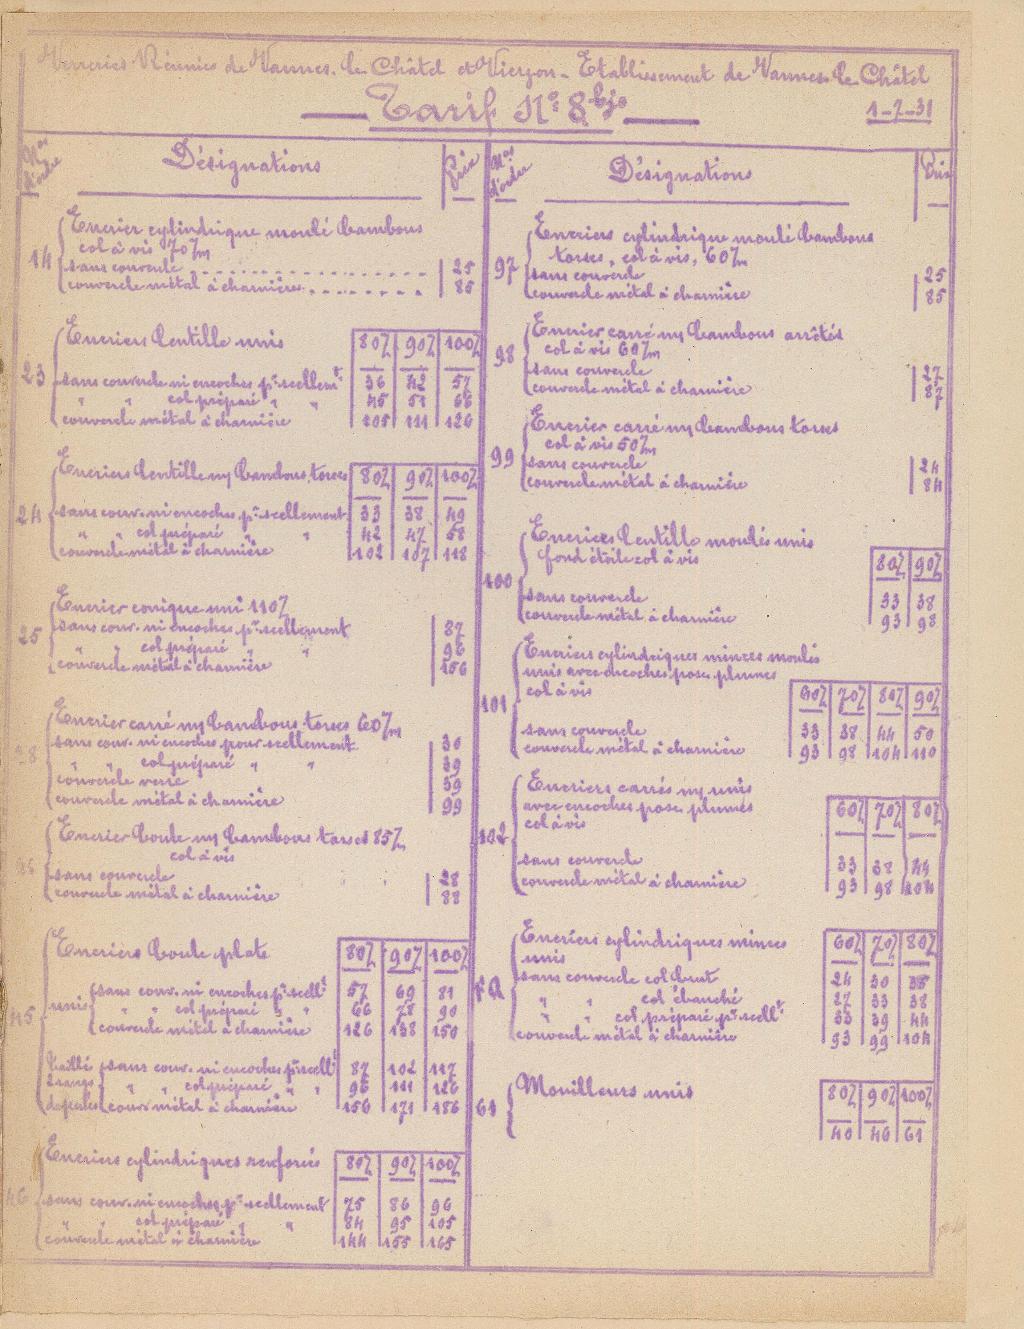 Verreries Réunies de Vannes-le-Châtel et Vierzon - Etablissement de Vannes-le-Châtel
Tarif No 8 bis
1-7-31
Nos d'ordre Désignations Prix
14 Encrier cylindrique moulé bambous
col à vis 70 m/m
sans couvercle 25
couvercle métal à charnières 85
23 Encriers lentille unis 80% 90% 100%
sans couvercle ni encoches pr scellemt 36 42 57
" " col préparé " " 45 51 66
couvercle métal à charnière 105 111 126
24 Encriers lentille my bambous, torses 80% 90% 100%
sans couv. ni encoches pr scellement 33 38 49
" " col préparé " " 42 47 58
couvercle métal à charnière 102 107 118
25 Encrier conique uni 110%
sans couv. ni encoches pr scellement 87
" " col préparé " " 96
couvercle métal à charnière 156
Encrier carré my bambous torses 60 m/m
sans couv. ni encoches pour scellement 30
" " col préparé " " 39
couvercle verre 59
couvercle métal à charnière 99
Encrier boule my bambous torses 85%
col à vis
sans couvercle 28
couvercle métal à charnière 88
45 Encriers boule plate 80% 90% 100%
unis sans couv. ni encoches pr scellt 57 69 81
" " col préparé " " 66 78 90
couvercle métal à charnière 126 138 150
taillé 2 rangs de perles sans couv. ni encoches pr scellt 87 102 117
" " col préparé " " 96 111 126
couv. métal à charnière 156 171 186
46 Encriers cylindriques renforcés 80% 90% 100%
sans couv. ni encoches pr scellement 75 86 96
" " col préparé " " 84 95 105
couvercle métal à charnière 144 155 165
Nos d'ordre Désignations Prix
97 Encriers cylindrique moulé bambous
torses, col à vis, 60 m/m
sans couvercle 25
couvercle métal à charnière 85
98 Encrier carré my bambous arrêtés
col à vis 60 m/m
sans couvercle 27
couvercle métal à charnière 87
99 Encrier carré my bambous torses
col à vis 50 m/m
sans couvercle 24
couvercle métal à charnière 84
100 Encriers lentille moulés unis
fond étoile col à vis 80% 90%
sans couvercle 33 38
couvercle métal à charnière 93 98
101 Encriers cylindriques minces moulés
unis avec encoches pose plumes
col à vis 60% 70% 80% 90%
sans couvercle 33 38 44 50
couvercle métal à charnière 93 98 104 110
102 Encriers carrés my unis
avec encoches pose plumes 60% 70% 80%
col à vis
sans couvercle 33 38 44
couvercle métal à charnière 93 98 104
Encriers cylindriques minces 60% 70% 80%
unis
sans couvercle col brut 24 30 35
" " col ébauché 27 33 38
" " col préparé pr scellt 33 39 44
couvercle métal à charnière 93 99 104
61 Mouilleurs unis 80% 90% 100%
40 46 61